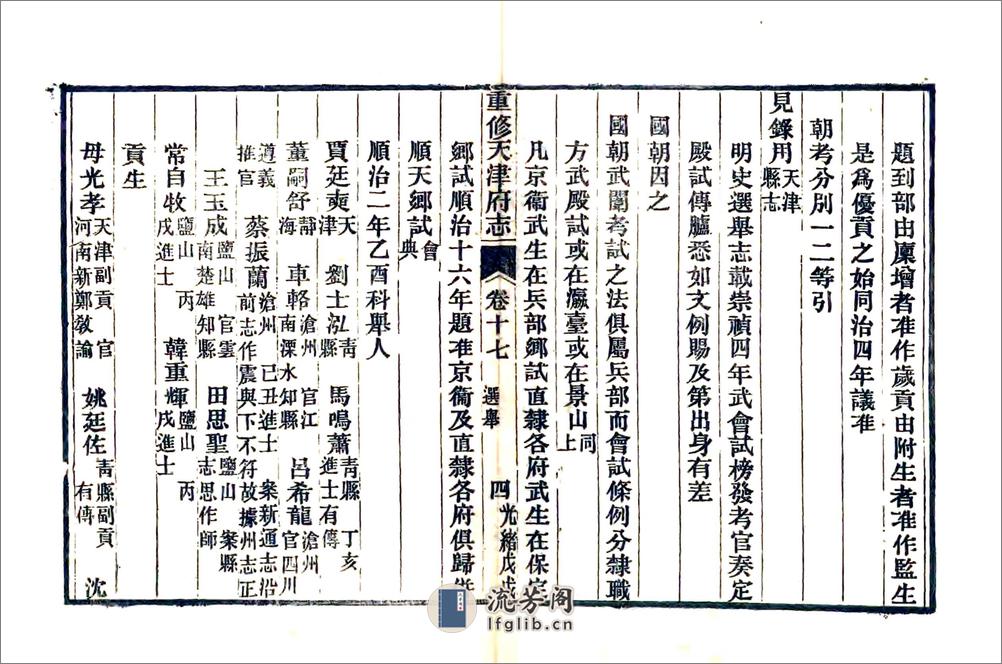 題到部由廩增者准作歲貢由附生者准作監生
是爲優貢之始同治四年議准
朝考分別一二等引
見錄用天津縣志
明史選舉志載崇禎四年武會試榜發考官奏定
殿試傳臚悉如文例賜及第出身有差
國朝因之
國朝武闈考試之法俱屬兵部而會試條例分隸職
方武殿試或在瀛臺或在景山同上
凡京衛武生在兵部鄉試直隸各府武生在保定
重修天津府志
卷十七
選舉
四
光緒戊戌
鄉試順治十六年題准京衛及直隸各府俱歸
順天鄉試會典
順治二年乙酉科舉人
賈廷奭天津 劉士泓青縣 馬鳴蕭青縣 丁亥進士有傳
董嗣舒靜海 車輅滄州 官江南溧水知縣 呂希龍滄州 官四川
遵義推官 蔡振蘭滄州 己丑進士 案新通志沿前志作震與下不符故據州志正
王玉成鹽山 官雲南楚雄知縣 田思聖鹽山 案縣志思作師
常自牧鹽山 丙戌進士 韓重輝鹽山 丙戌進士
貢生
母光孝天津副貢 官河南新鄭敎諭 姚廷佐青縣副貢 有傳 沈
流芳阁
lfglib.cn